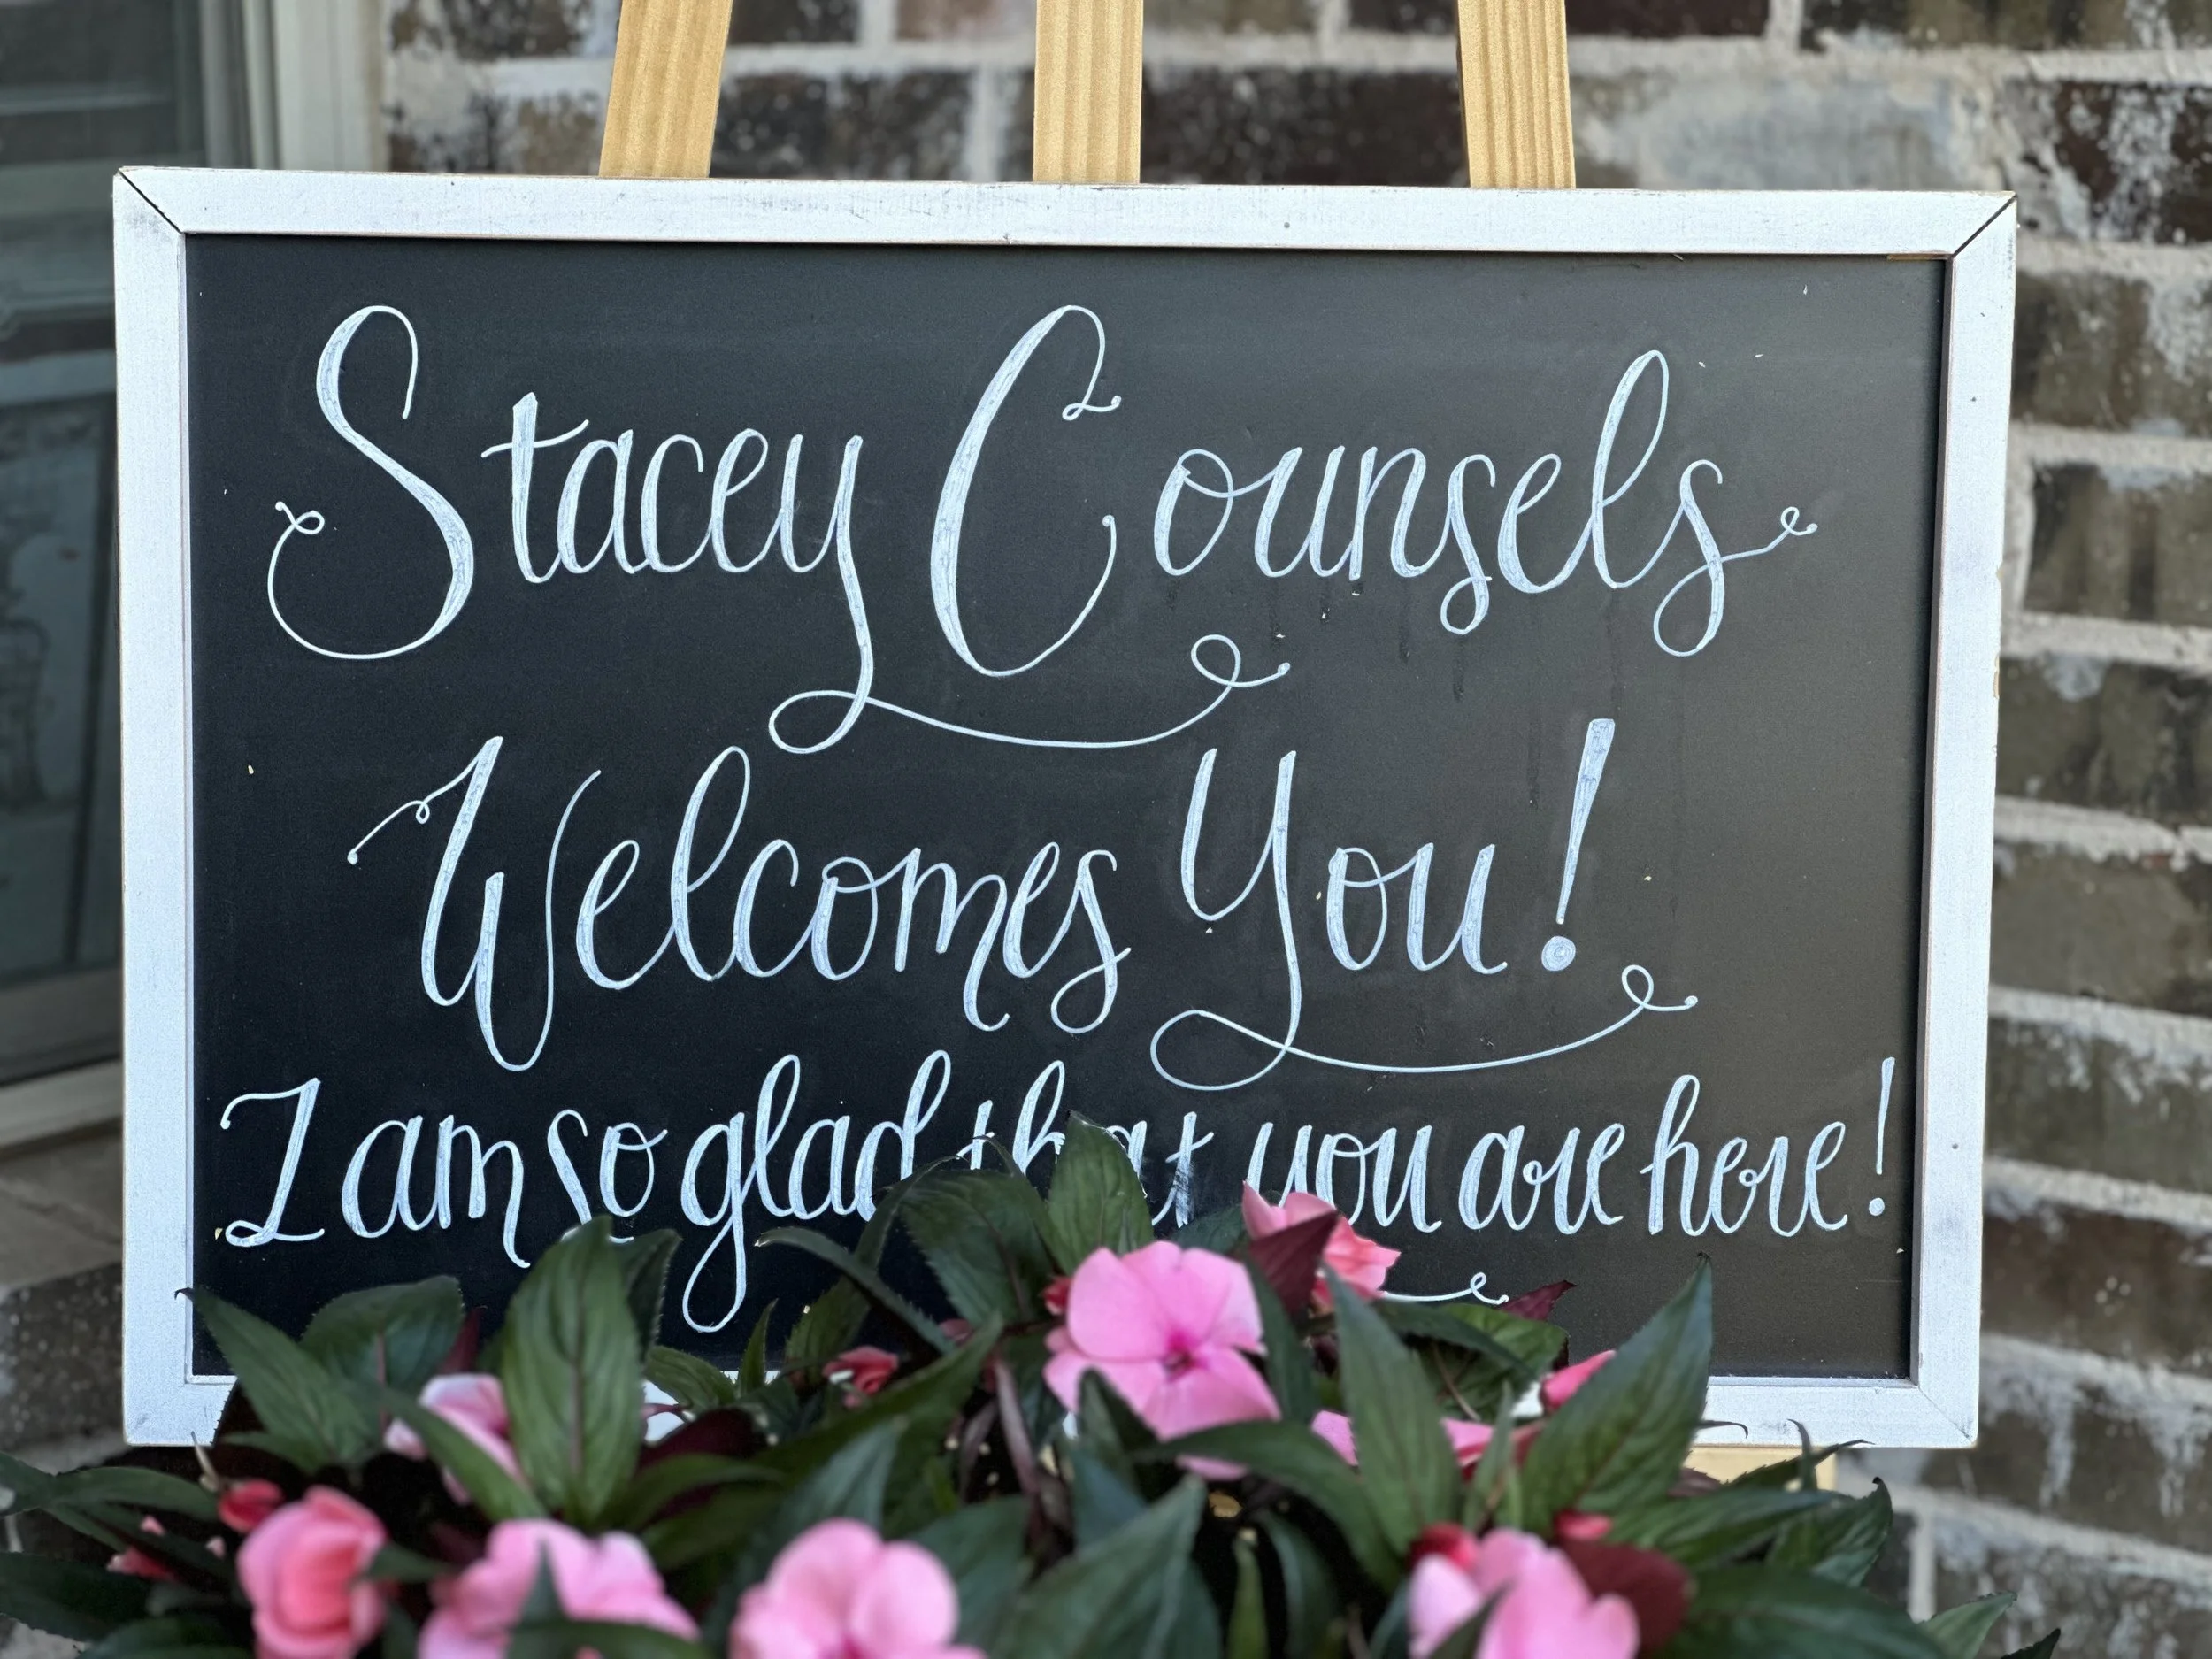 Stacey Counsels
Welcomes You!
I am so glad that you are here!